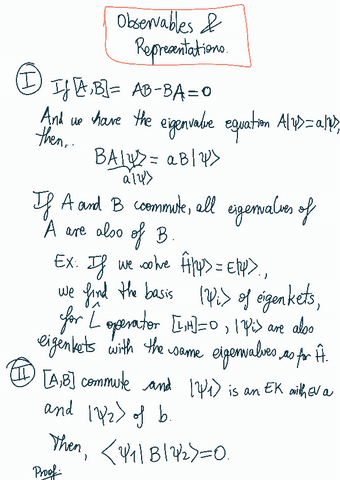 Observables &
Representations.
I If [A,B] = AB-BA=0
And we have the eigenvalue equation A|ψ>=a|ψ>,
then,.
BA|ψ> = aB|ψ>
a|ψ>
If A and B commute, all eigenvalues of
A are also of B.
EX: If we solve Ĥ|ψ>=E|ψ>.,
we find the basis |ψi> of eigenkets,
for L̂ operator [L,H]=0, |ψi> are also
eigenkets with the same eigenvalues as for Ĥ.
II [A,B] commute and |ψ1> is an EK with EV a
and |ψ2> of b.
Then, <ψ1|B|ψ2>=0.
Proof: